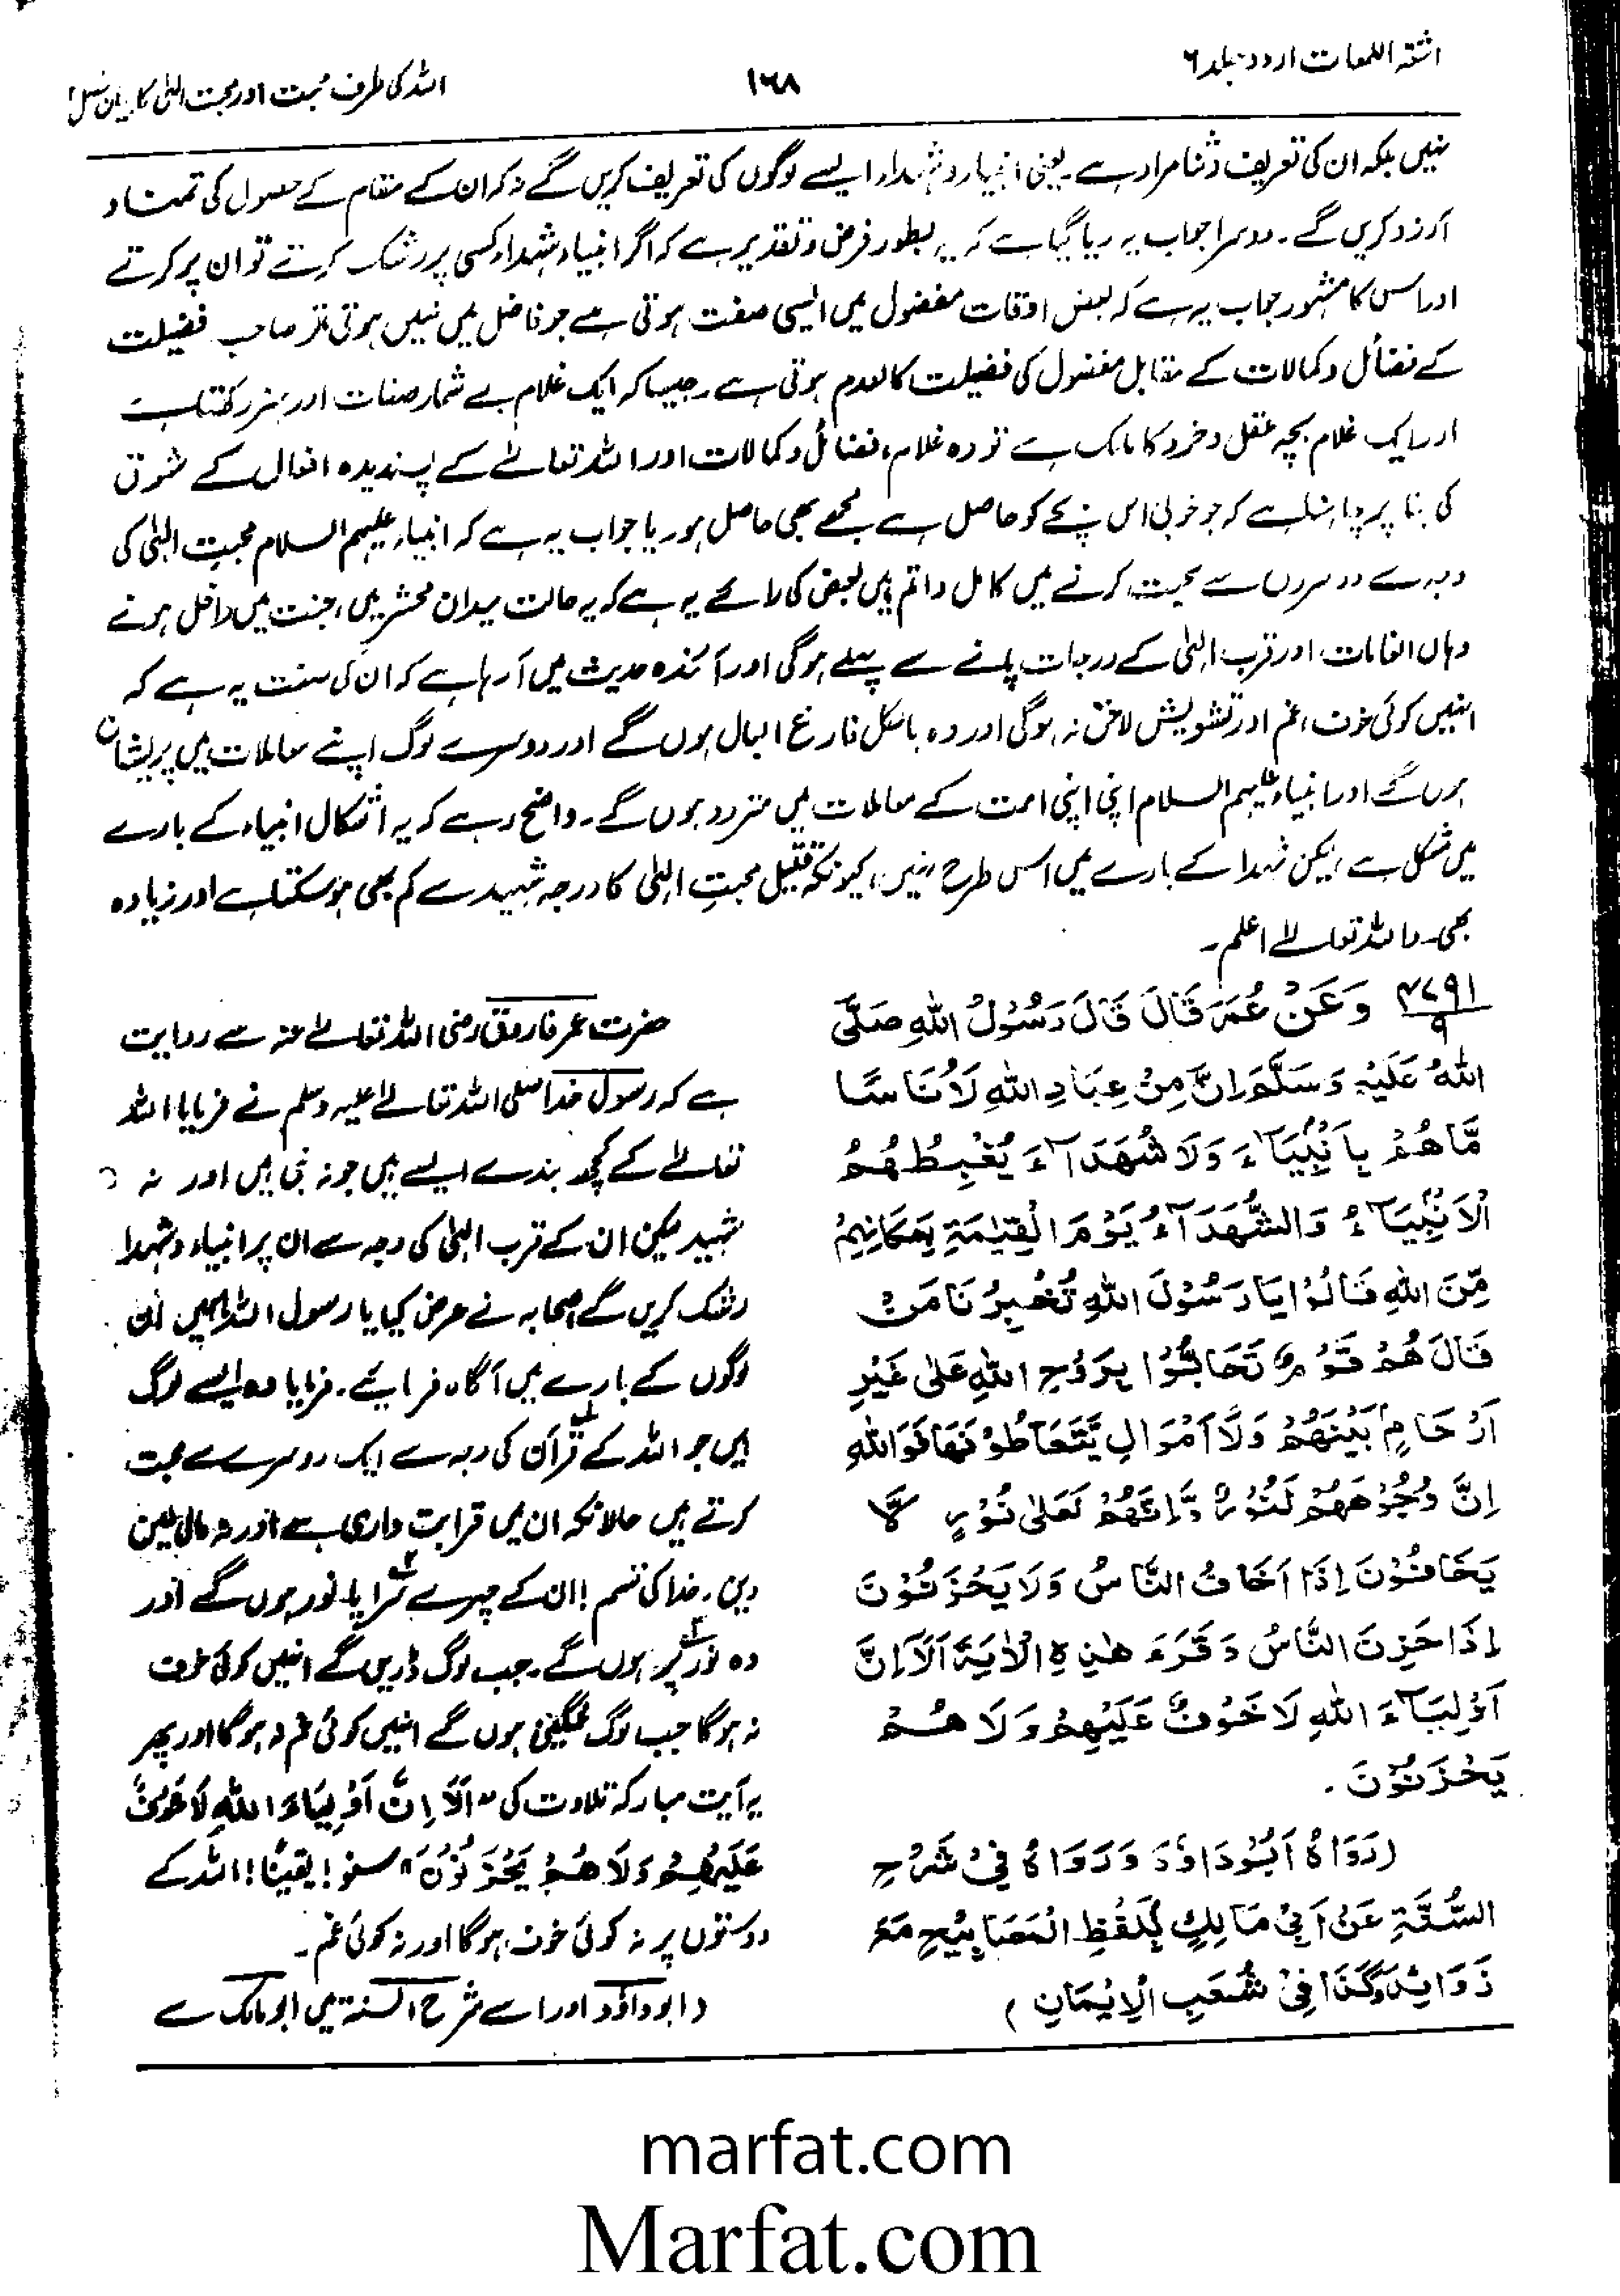 اشعۃ اللمعات اردو جلد ۶
۱۶۸
اللہ کی طرف محبت اور محبت الٰہی کا بیان فصل ۲
نہیں بلکہ ان کی تعریف و ثنا مراد ہے۔ یعنی انبیاء و شہداء ایسے لوگوں کی تعریف کریں گے نہ کہ ان کے مقام کے حصول کی تمنا و
آرزو کریں گے۔ دوسرا جواب یہ دیا گیا ہے کہ یہ بطور فرض و تقدیر ہے کہ اگر انبیاء شہداء کسی پر رشک کرتے تو ان پر کرتے
اور اس کا مشہور جواب یہ ہے کہ بعض اوقات مفضول میں ایسی صفت ہوتی ہے جو فاضل میں نہیں ہوتی مگر صاحب فضیلت
کے فضائل و کمالات کے مقابل مفضول کی فضیلت کالعدم ہوتی ہے۔ جیسا کہ ایک غلام بے شمار صفات اور ہنر رکھتا ہے
اور ایک غلام بچہ عقل و خرد کا مالک ہے تو وہ غلام، فضائل و کمالات اور اللہ تعالےٰ کے پسندیدہ افعال کے شوق
کی بنا پر چاہتا ہے کہ جو خوبی اس بچے کو حاصل ہے مجھے بھی حاصل ہو۔ یا جواب یہ ہے کہ انبیاء علیہم السلام محبتِ الٰہی کی
وجہ سے دوسروں سے محبت کرنے میں کامل و اتم ہیں بعض کی رائے یہ ہے کہ یہ حالت میدان محشر میں، جنت میں داخل ہونے
وہاں انعامات اور قرب الٰہی کے درجات پانے سے پہلے ہوگی اور آئندہ حدیث میں آ رہا ہے کہ ان کی صفت یہ ہے کہ
انہیں کوئی خوف، غم اور تشویش لاحق نہ ہوگی اور وہ بالکل فارغ البال ہوں گے اور دوسرے لوگ اپنے معاملات میں پریشان
ہوں گے اور انبیاء علیہم السلام اپنی اپنی امت کے معاملات میں متردد ہوں گے۔ واضح رہے کہ یہ اشکال انبیاء کے بارے
میں مشکل ہے، لیکن شہدا کے بارے میں اس طرح نہیں، کیونکہ قتیل محبتِ الٰہی کا درجہ شہید سے کم بھی ہو سکتا ہے اور زیادہ
بھی۔ واللہ تعالےٰ اعلم۔
۴۷۹۱
۹
وَعَنْ عُمَرَ قَالَ قَالَ رَسُوْلُ اللهِ صَلَّى
اللهُ عَلَيْهِ وَسَلَّمَ اِنَّ مِنْ عِبَادِ اللهِ لَاُنَاسًا
مَّا هُمْ بِاَنْبِيَآءَ وَلَا شُهَدَآءَ يَغْبِطُهُمُ
الْاَنْبِيَآءُ وَالشُّهَدَآءُ يَوْمَ الْقِيٰمَةِ بِمَكَانِهِمْ
مِّنَ اللهِ قَالُوْا يَا رَسُوْلَ اللهِ تُخْبِرُنَا مَنْ
قَالَ هُمْ قَوْمٌ تَحَابُّوْا بِرُوْحِ اللهِ عَلٰى غَيْرِ
اَرْحَامٍ بَيْنَهُمْ وَلَا اَمْوَالٍ يَّتَعَاطَوْنَهَا فَوَاللهِ
اِنَّ وُجُوْهَهُمْ لَنُوْرٌ وَّاِنَّهُمْ لَعَلٰى نُوْرٍ لَا
يَخَافُوْنَ اِذَا اَخَافُ النَّاسُ وَلَا يَحْزَنُوْنَ
اِذَا حَزِنَ النَّاسُ وَقَرَءَ هٰذِهِ الْاٰيَةَ اَلَا اِنَّ
اَوْلِيَآءَ اللهِ لَا خَوْفٌ عَلَيْهِمْ وَلَا هُمْ
يَحْزَنُوْنَ۔
(رَوَاهُ اَبُوْدَاوٗدَ وَرَوَاهُ فِىْ شَرْحِ
السُّنَّةِ عَنْ اَبِىْ مَالِكٍ بِلَفْظِ الْمَصَابِيْحِ مَعَ
زَوَائِدَ وَكَذَا فِىْ شُعَبِ الْاِيْمَانِ)
حضرت عمر فاروق رضی اللہ تعالےٰ عنہ سے روایت
ہے کہ رسول خدا صلی اللہ تعالےٰ علیہ وسلم نے فرمایا اللہ
تعالےٰ کے کچھ بندے ایسے ہیں جو نہ نبی ہیں اور نہ
شہید لیکن ان کے قرب الٰہی کی وجہ سے ان پر انبیاء و شہدا
رشک کریں گے صحابہ نے عرض کیا یا رسول اللہ ہمیں ان
لوگوں کے بارے میں آگاہ فرمائیے۔ فرمایا وہ ایسے لوگ
ہیں جو اللہ کے قرآن کی وجہ سے ایک دوسرے سے محبت
کرتے ہیں حالانکہ ان میں قرابت داری ہے اور نہ مالی لین
دین۔ خدا کی قسم! ان کے چہرے سراپا نور ہوں گے اور
وہ نور پر ہوں گے۔ جب لوگ ڈریں گے انہیں کوئی خوف
نہ ہوگا جب لوگ غمگین ہوں گے انہیں کوئی غم نہ ہوگا اور پھر
یہ آیت مبارکہ تلاوت کی "اَلَا اِنَّ اَوْلِيَاءَ اللهِ لَا خَوْفٌ
عَلَيْهِمْ وَلَا هُمْ يَحْزَنُوْنَ" سنو! یقینًا! اللہ کے
دوستوں پر نہ کوئی خوف ہوگا اور نہ کوئی غم۔
(ابو داؤد اور اسے شرح السنۃ میں ابو مالک سے
marfat.com
Marfat.com